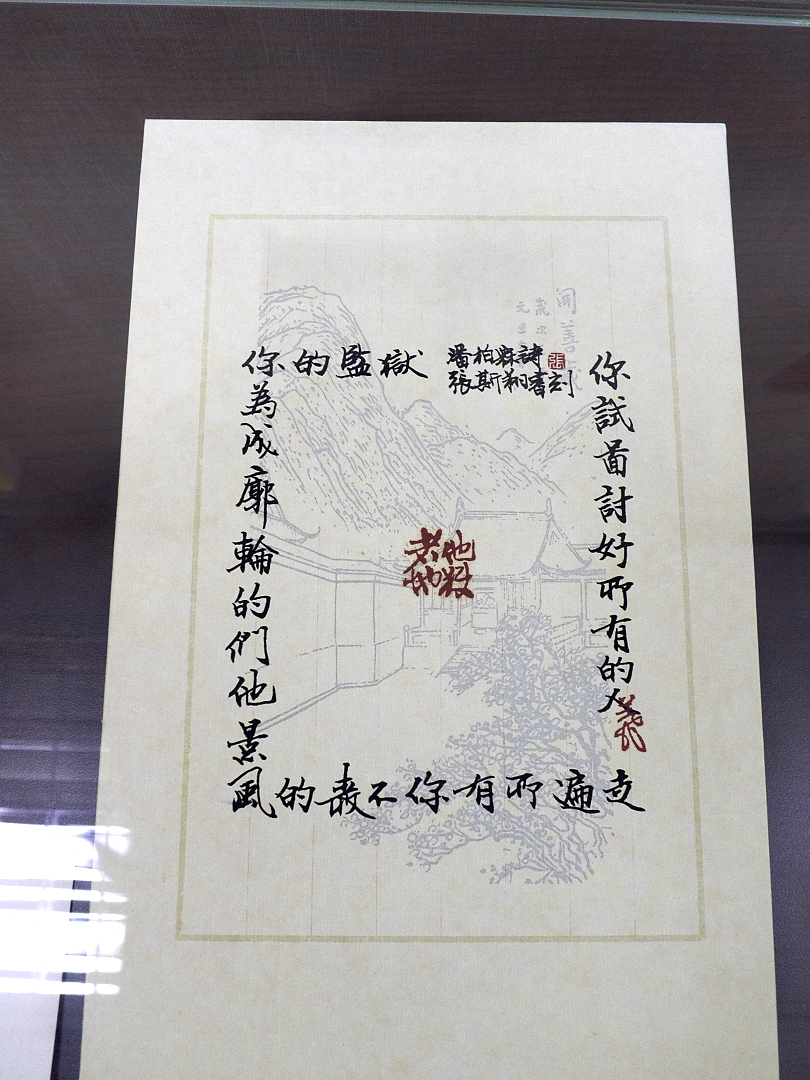 你試圖討好所有的人
走遍所有你不的風景
他們的輪廓成為你
的監獄
潘柏霖詩
張斯翔書刻
張
開善
歲次
元旦